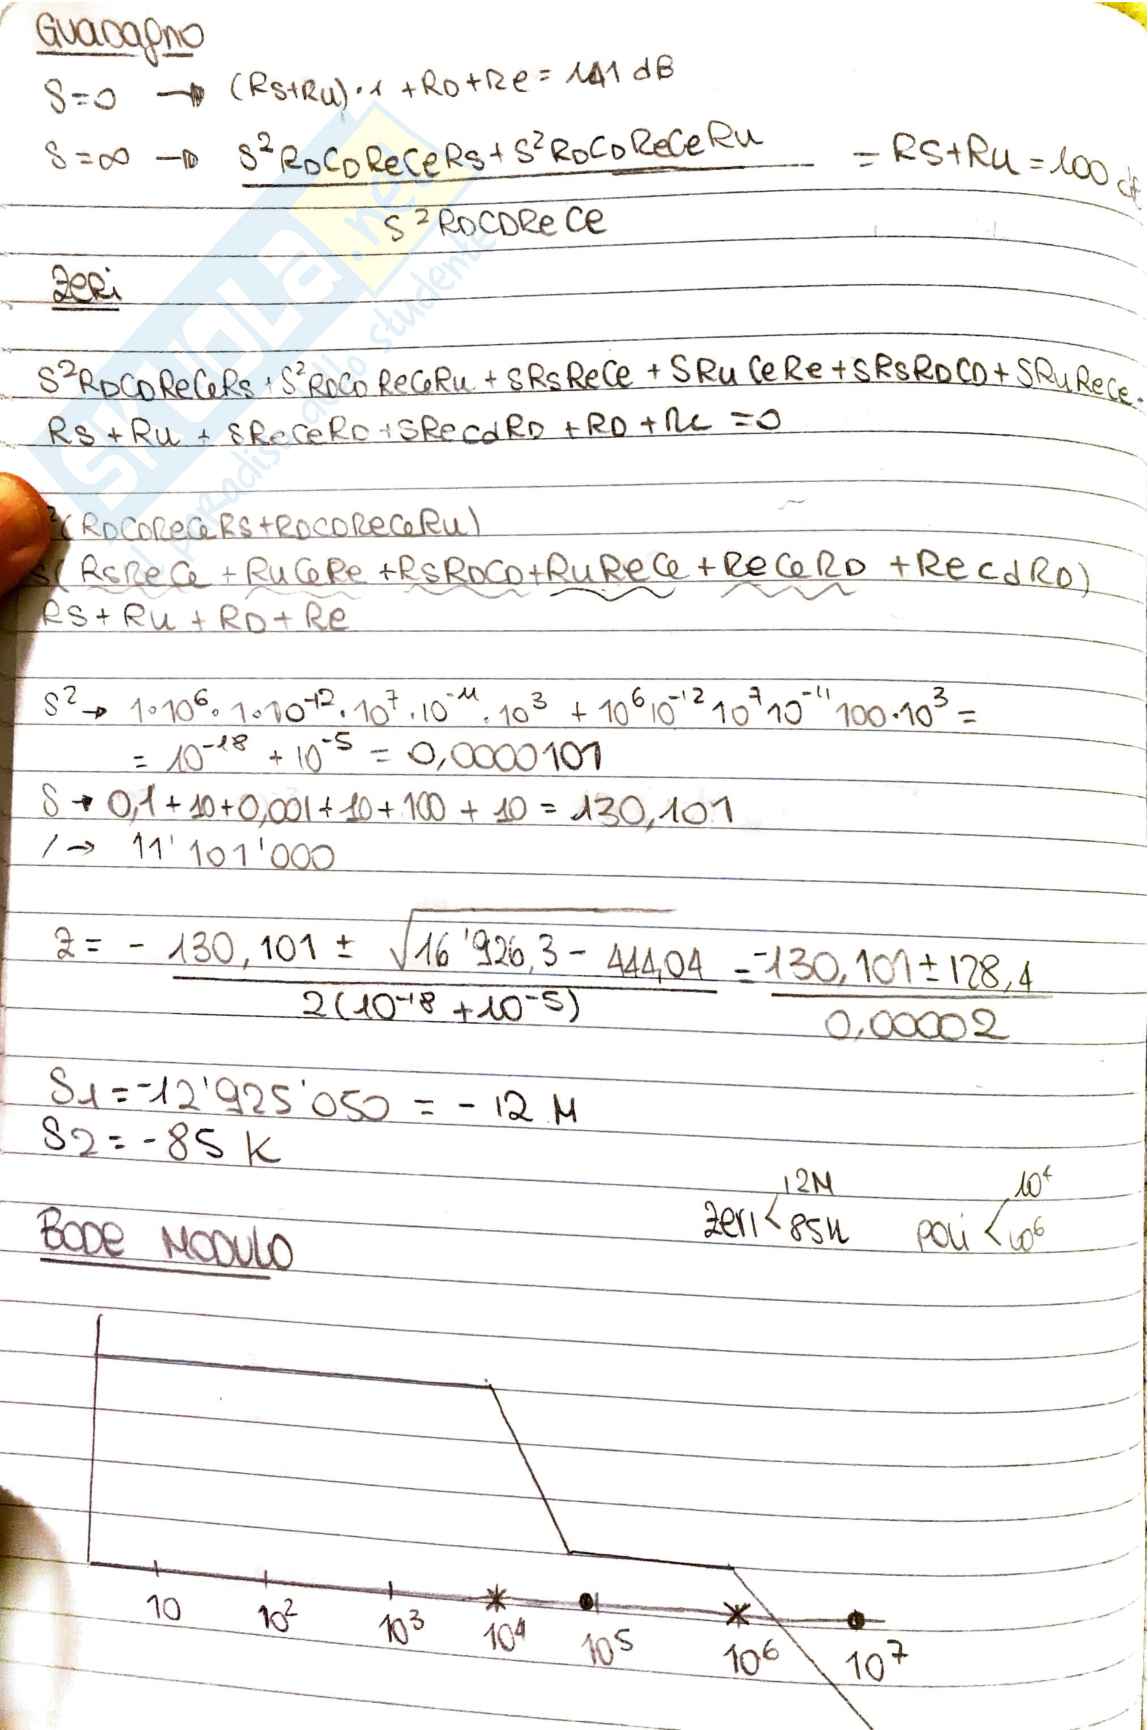 Guadagno
S=0 → (Rs+Ru)·1 +RD+Re = 141 dB
S=∞ → S²RDCDReCeRs + S²RDCDReCeRu = RS+Ru = 100
S²RDCDReCe
Zeri
S²RDCDReCeRs + S²RDCDReCeRu + SRsReCe + SRuCeRe + SRsRDCD + SRuReCe.
Rs + Ru + SReCeRD + SRecdRD + RD + Re = 0
²(RDCDReCeRs+RDCDReCeRu)
S(RsReCe + RuCeRe + RsRDCD + RuReCe + ReCeRD + RecdRD)
RS + Ru + RD + Re
S² → 1·10⁶·1·10⁻¹²·10⁷·10⁻¹¹·10³ + 10⁶10⁻¹²10⁷10⁻¹¹100·10³ =
= 10⁻¹⁸ + 10⁻⁵ = 0,0000101
S → 0,1+10+0,001+10+100 + 10 = 130,101
/ → 11'101'000
Z = - 130,101 ± √16'926,3 - 444,04 = -130,101 ± 128,4
2(10⁻¹⁸ + 10⁻⁵) 0,00002
S1 = -12'925'050 = - 12 M
S2 = - 85 K
zeri < 12M 85k poli < 10⁴ 10⁶
BODE MODULO
10 10² 10³ 10⁴ 10⁵ 10⁶ 10⁷
SKUOLA.net
il paradiso dello studente